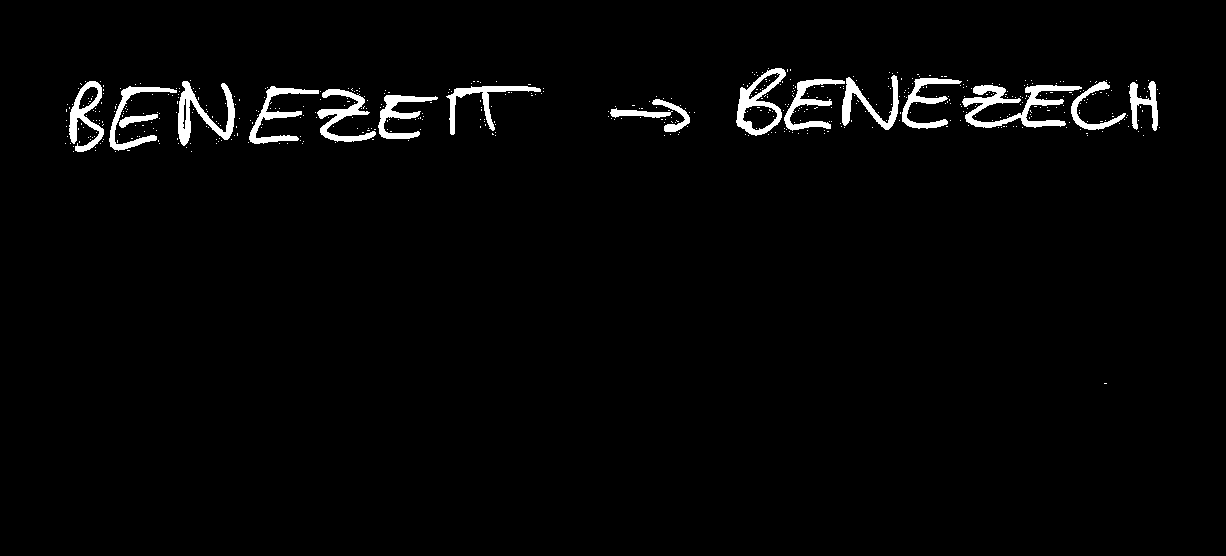 BENEZEIT → BENEZECH